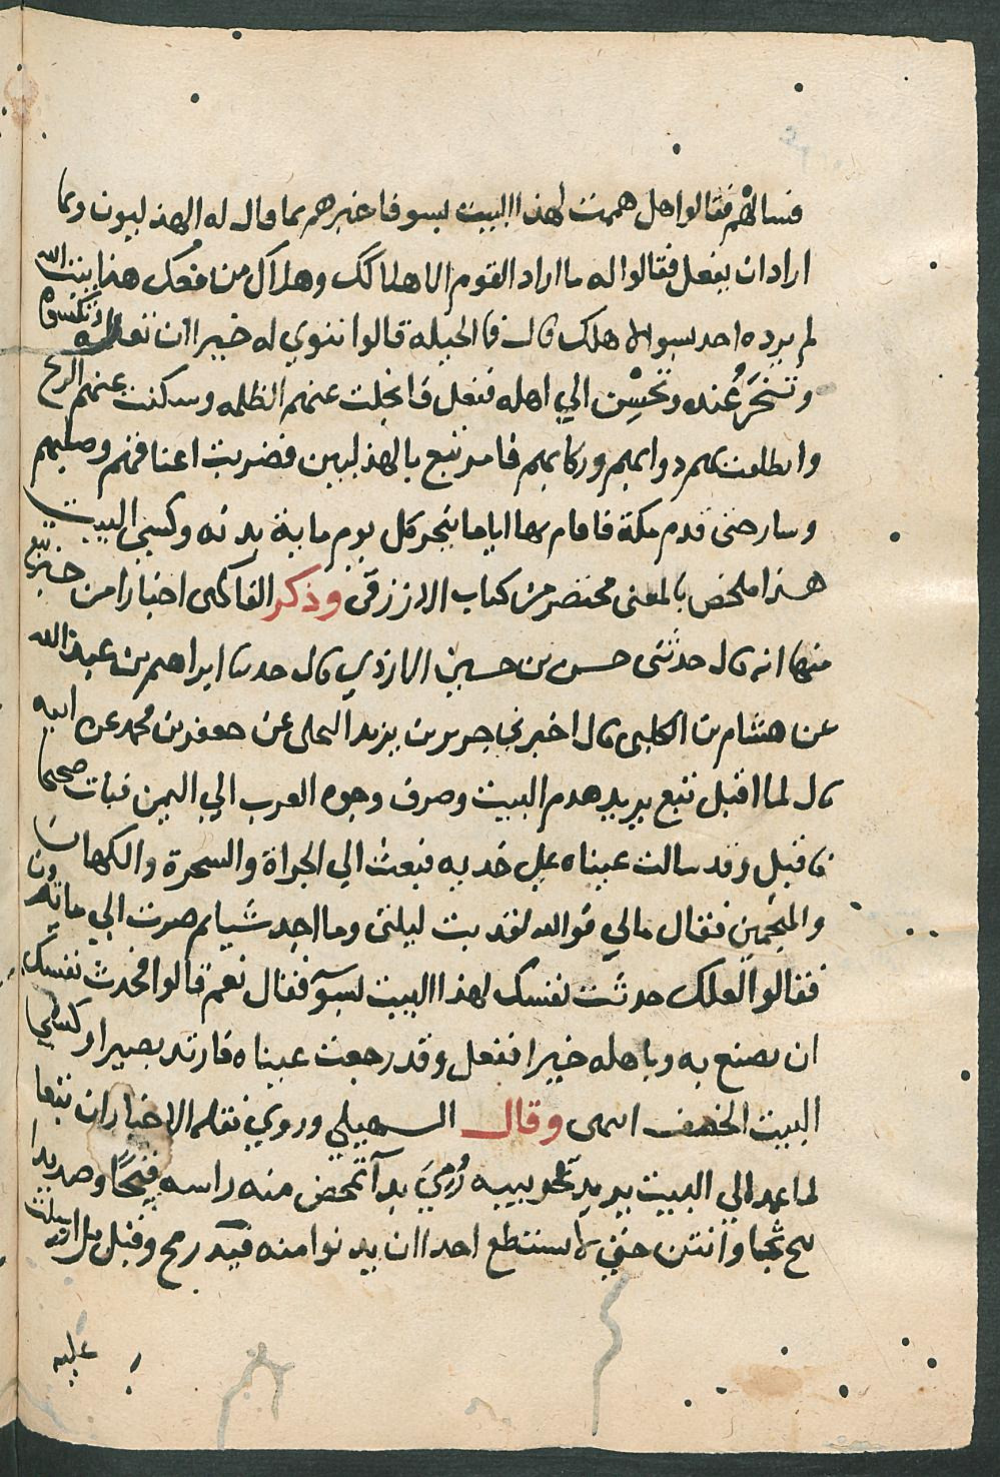 فسالهم فقالوا هل هممت لهذا البيت بسو فاخبرهم بما قال له الهذليون وبما
اراد ان يفعل فقالوا له ما اراد القوم الا هلاكك وهلاك من معك هذا بيت الله
لم يرده احد بسوالا هلك قال فما الحيله قالوا تنوي له خيرا ان تعظمه وتكسوه
وتنحر عنده وتحسن الي اهله ففعل فانجلت عنهم الظلمه وسكنت عنهم الريح
وانطلقت بهم دوابهم وركابهم فامر تبع بالهذليين فضربت اعناقهم وصلبهم
وسار حتى قدم مكة فاقام بها اياما ينحر كل يوم ماية بدنه وكسي البيت
هذا ملخص بالمعنى مختصر من كتاب الازرقي وذكر الفاكهي اخبارا من خبر تبع
منها انه قال حدثني حسن بن حسين الازدي قال حدثنا ابراهيم بن عبد الله
عن هشام بن الكلبي قال اخبرني جرير بن يزيد البجلى عن جعفر بن محمد عن ابيه
قال لما اقبل تبع يريد هدم البيت وصرف وجوه العرب الي اليمن فبات صحيحا
فاقبل وقد سالت عيناه علي خديه فبعث الي الجراة والسحرة والكهان
والمنجمين فقال مالي فوالله لقد بت ليلتي وما اجد شيا ثم صرت الي ما ترون
فقالوا لعلك حدثت نفسك لهذا البيت بسو فقال نعم قالوا فحدث نفسك
ان تصنع به وباهله خيرا ففعل وقد رجعت عيناه فارتد بصيرا وكسي
البيت الخصف انتهى وقال السهيلي وروي نقلة الاخبار ان تبعا
لما عمد الي البيت يريد تخريبه رمي بدآ تمخض منه راسه قيحا وصديدا
يثج ثجا وانتن حتي لا يستطع احد ان يدنوا منه قيد رمح وقيل بل ارسلت
عليه